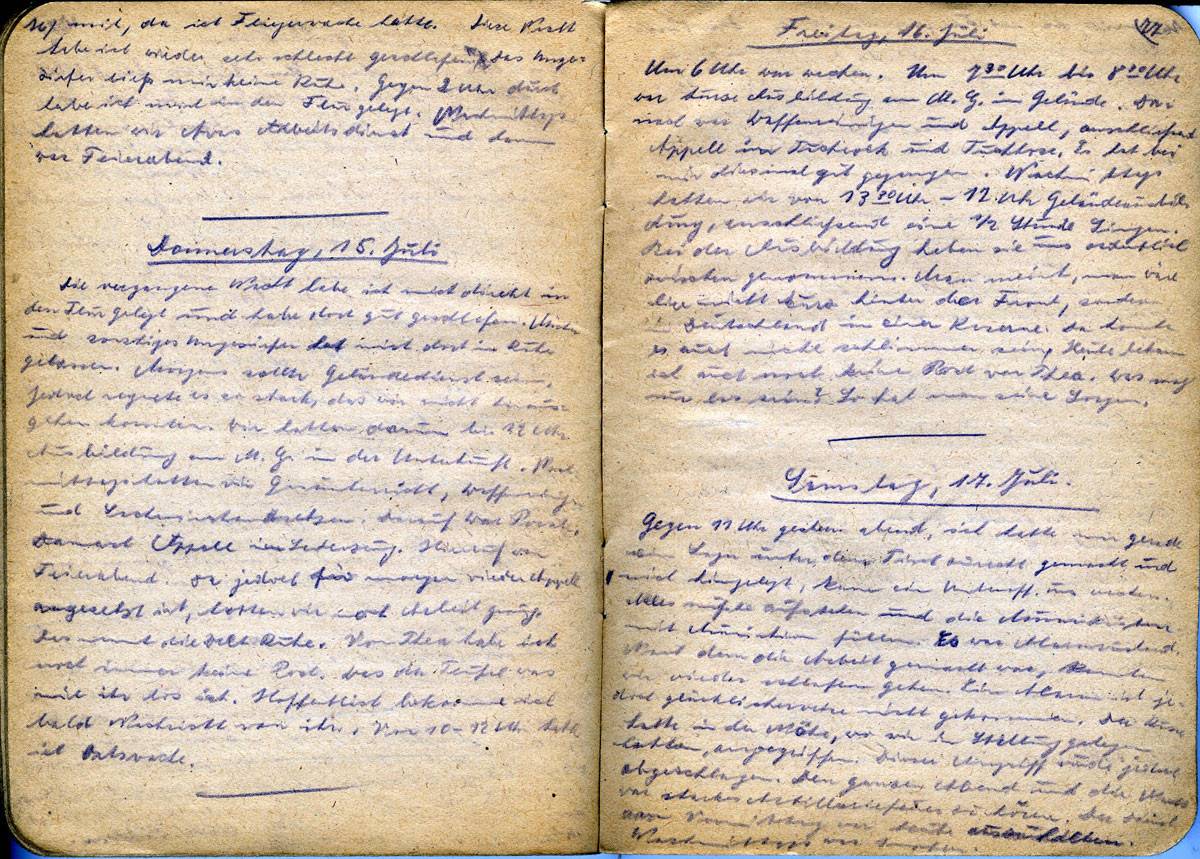 mit, da ich Fliegerwache hatte. Diese Nacht
habe ich wieder sehr schlecht geschlafen. Das Unge-
ziefer ließ mir keine Ruhe. Gegen 2 Uhr
habe ich mich in den Flur gelegt. Nachmittags
hatten wir Arbeitsdienst und dann
war Feierabend.
Donnerstag, 15. Juli
Die vergangene Nacht habe ich mich direkt in
den Flur gelegt und habe dort gut geschlafen.
und sonstiges Ungeziefer hat mich dort in Ruhe
gelassen. Morgens sollte Geländedienst sein,
jedoch regnete es so stark, das wir nicht heraus-
gehen konnten. Wir hatten darum bis 12 Uhr
Ausbildung am M. G. in der Unterkunft. Nach-
mittags hatten wir Waffenreinigen
und. Darauf war
Appell im. Hierauf war
Feierabend. Da jedoch für morgen wieder Appell
angesetzt ist, hatten wir noch Arbeit genug.
Das nennt die Welt Ruhe. Von Thea habe ich
noch immer keine Post. Was da Teufel was
mit ihr los ist. Hoffentlich bekomme ich
bald Nachricht von ihr. Von 10-12 Uhr hatte
ich Ortswache.
77
Freitag, 16. Juli
Um 6 Uhr war wecken. Um 7 30 Uhr bis 8 30 Uhr
war Ausbildung am M. G. im Gelände. Da-
nach war Waffenreinigen und Appell, anschließend
Appell in Tuchrock und Tuchhose. Es hat bei
mir diesmal gut gegangen. Nachmittags
hatten wir von 13 30 Uhr - 17 Uhr Geländeausbil-
dung, anschließend eine 1/2 Stunde Singen.
Bei der Ausbildung haben sie uns ordentlich
genommen. Man meint, man wäre
hier nicht kurz hinter der Front, sondern
in Deutschland in einer Kaserne. Da konnte
es auch nicht schlimmer sein. Heute bekam
ich auch noch keine Post von Thea. Was mag
nur los sein? So hat man seine Sorgen.
Samstag, 17. Juli.
Gegen 11 Uhr gestern abend, ich hatte mir gerade
mein Lager unter dem Tisch zurecht gemacht und
mich hingelegt, kam ein Unteroff. uns wecken.
Alles mußte aufstehen und die
mit Munition füllen. Es war Alarmzustand.
Nach dem die Arbeit gemacht war, konnten
wir wieder schlafen gehen. Ein Alarm ist je-
doch glücklicherweise nicht gekommen. Der Russe
hatte in der Nähe, wo wir in Stellung gelegen
hatten, angegriffen. Dieser Angriff wurde jedoch
abgeschlagen. Den ganzen Abend und die Nacht
war starkes Artilleriefeuer zu hören. Der Dienst
am Vormittag war heute auszuhalten.
Nachmittags war